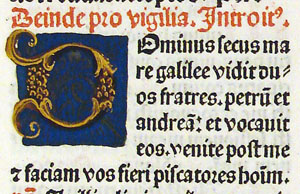 Deinde pro vigilia. Introitꝰ.
Dominus secus ma
re galilee vidit du
os fratres. petrū et
andreā: et vocauit
eos. venite post me
et faciam vos fieri piscatores hoīm.